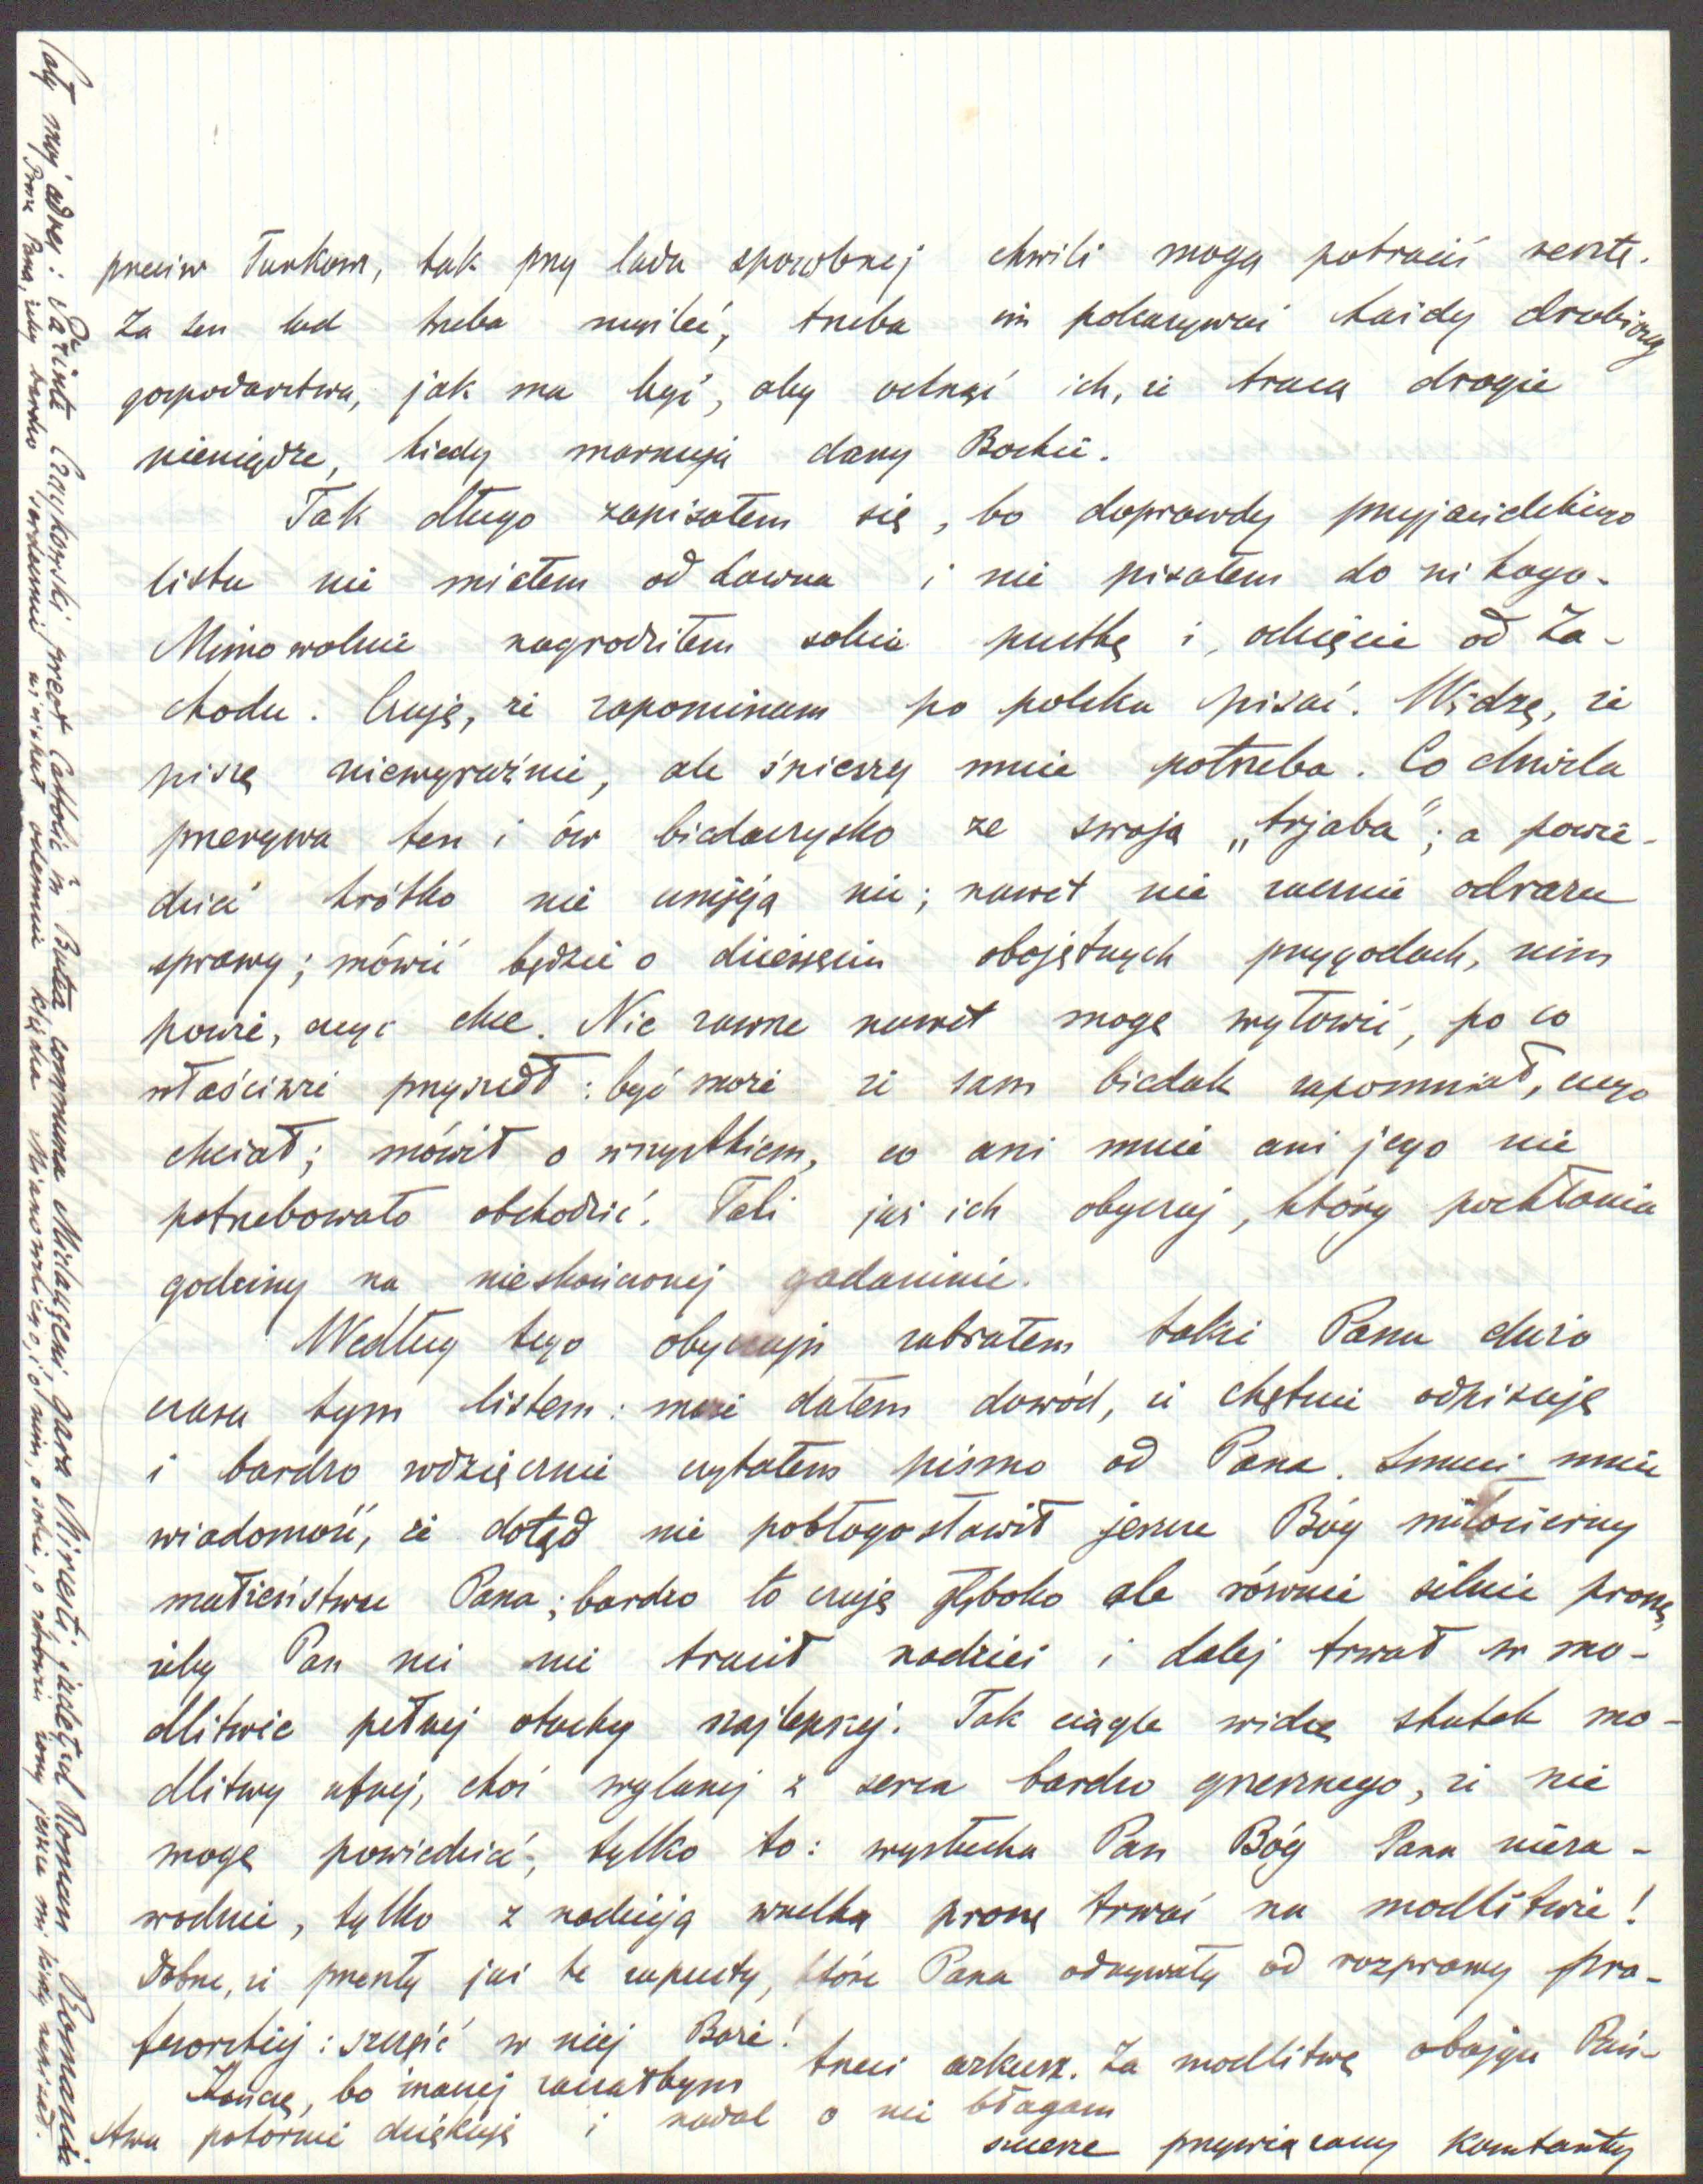 przeciw Turkom, tak przy lada sposobnej chwili mogą potracić resztę.
Za ten lud trzeba myśleć, trzeba im pokazywać każdy drobiazg
gospodarstwa, jak ma być, aby ich, że tracą drogie
pieniądze, kiedy marnują dary Boskie.
Tak długo zapisałem się, bo doprawdy przyjacielskiego
listu nie miałem od dawna i nie pisałem do nikogo.
Mimowolnie nagrodziłem sobie pustkę i odcięcie od Za-
chodu. Czuję, że zapominam po polsku pisać. Widzę, że
piszę niewyraźnie, ale śpieszy mnie potrzeba. Co chwila
przerywa ten i ów biedaczysko ze swoją „trjaba”; a powie-
dzieć krótko nie umieją nic; nawet nie zacznie odrazu
sprawy; mówić będzie o dziesięciu obojętnych przygodach, nim
powie, czego chce. Nie zawsze nawet mogę wyłowić, po co
właściwie przyszedł: być może że sam biedak zapomniał, czego
chciał; mówił o wszystkiem, co ani mnie ani jego nie
potrzebowało obchodzić. Taki już ich obyczaj, który pochłania
godziny na nieskończonej gadaninie.
Według tego obyczaju zabrałem także Panu dużo
czasu tym listem: może dałem dowód, że chętnie odpisuję
i bardzo wdzięcznie czytałem pismo od Pana. Smuci mnie
wiadomość, że dotąd nie pobłogosławił jeszcze Bóg miłosierny
małżeństwu Pana; bardzo to czuję głęboko ale równie silnie proszę,
żeby Pan nic nie tracił nadziei i dalej trwał w mo-
dlitwie pełnej otuchy najlepszej. Tak ciągle widzę skutek mo-
dlitwy ufnej, choć wylanej z serca bardzo grzesznego, że nie
mogę powiedzieć, tylko to: wysłucha Pan Bóg Pana nieza-
wodnie, tylko z nadzieją wszelką proszę trwać na modlitwie!
Dobrze, że przeszły już te zapusty, które Pana odrywały od rozprawy pro-
fesorskiej: szczęść w niej Boże!
Kończę, bo inaczej zacząłbym trzeci arkusz. Za modlitwę obojga Pań-
stwa pokornie dziękuję i nadal o nie błagam
szczerze przywiązany Konstanty
Cały mój adres: Părinte Czaykowski preot Catholic în Butea comuna Miclăușeni, gara Mircești, județul Roman Romania
Proszę Pana, żeby bardzo serdecznie uściskał odemnie księdza Mianowskiego, i o nim, o sobie, o zdrowiu żony jeszcze mi kiedy napisał.